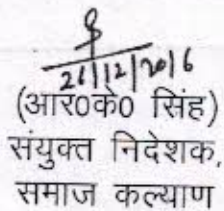 21/12/2016
(आर0के0 सिंह)
संयुक्त निदेशक,
समाज कल्याण